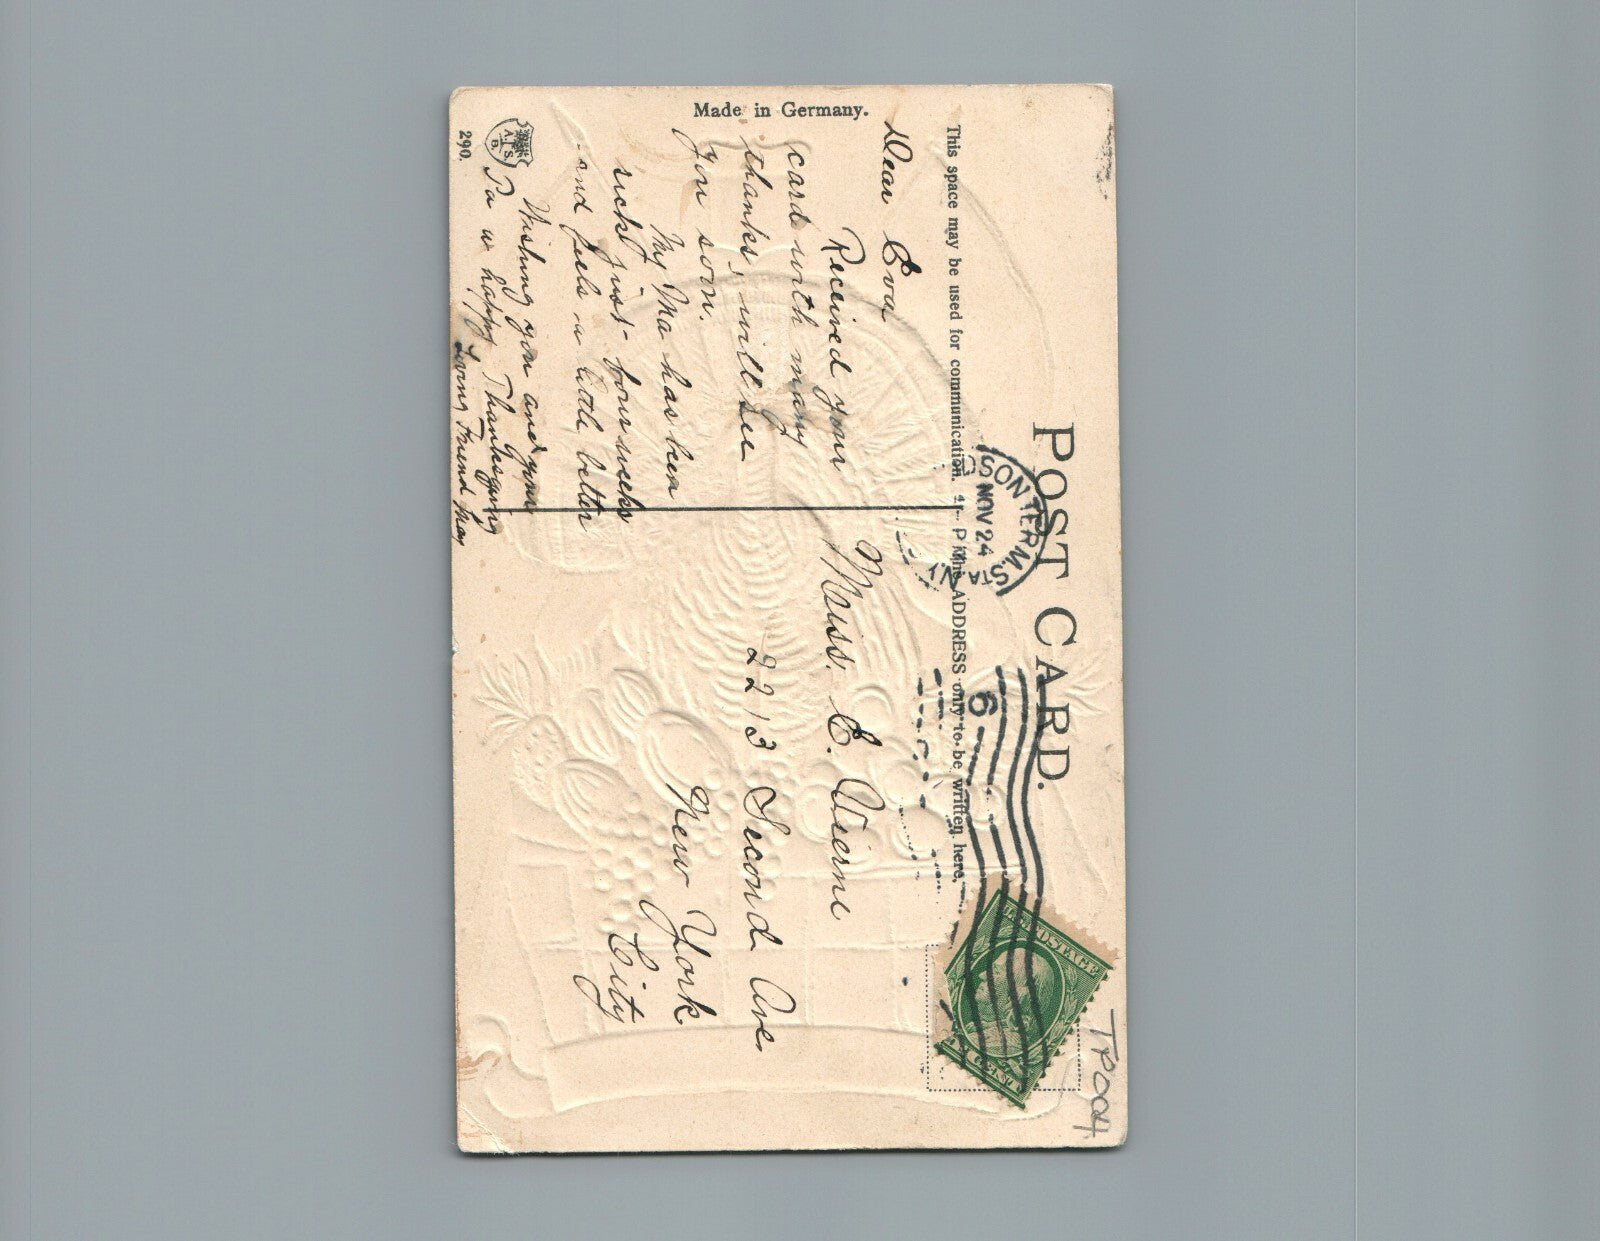 POST CARD.
This space may be used for communication.
The ADDRESS only to be written here.
Made in Germany.
Dear Eva
Received your
card with many
thanks, will see
you soon.
My Ma has been
sick just four weeks
and feels a little better
Wishing you and your
Pa a happy Thanksgiving
Loving Friend May
A. S. B.
290.
DSON TERM. STA. N.Y.
NOV 24
6
U.S. POSTAGE
1 CENT 1
Miss. E. Vierne
2213 Second Ave
New York
City
TP004